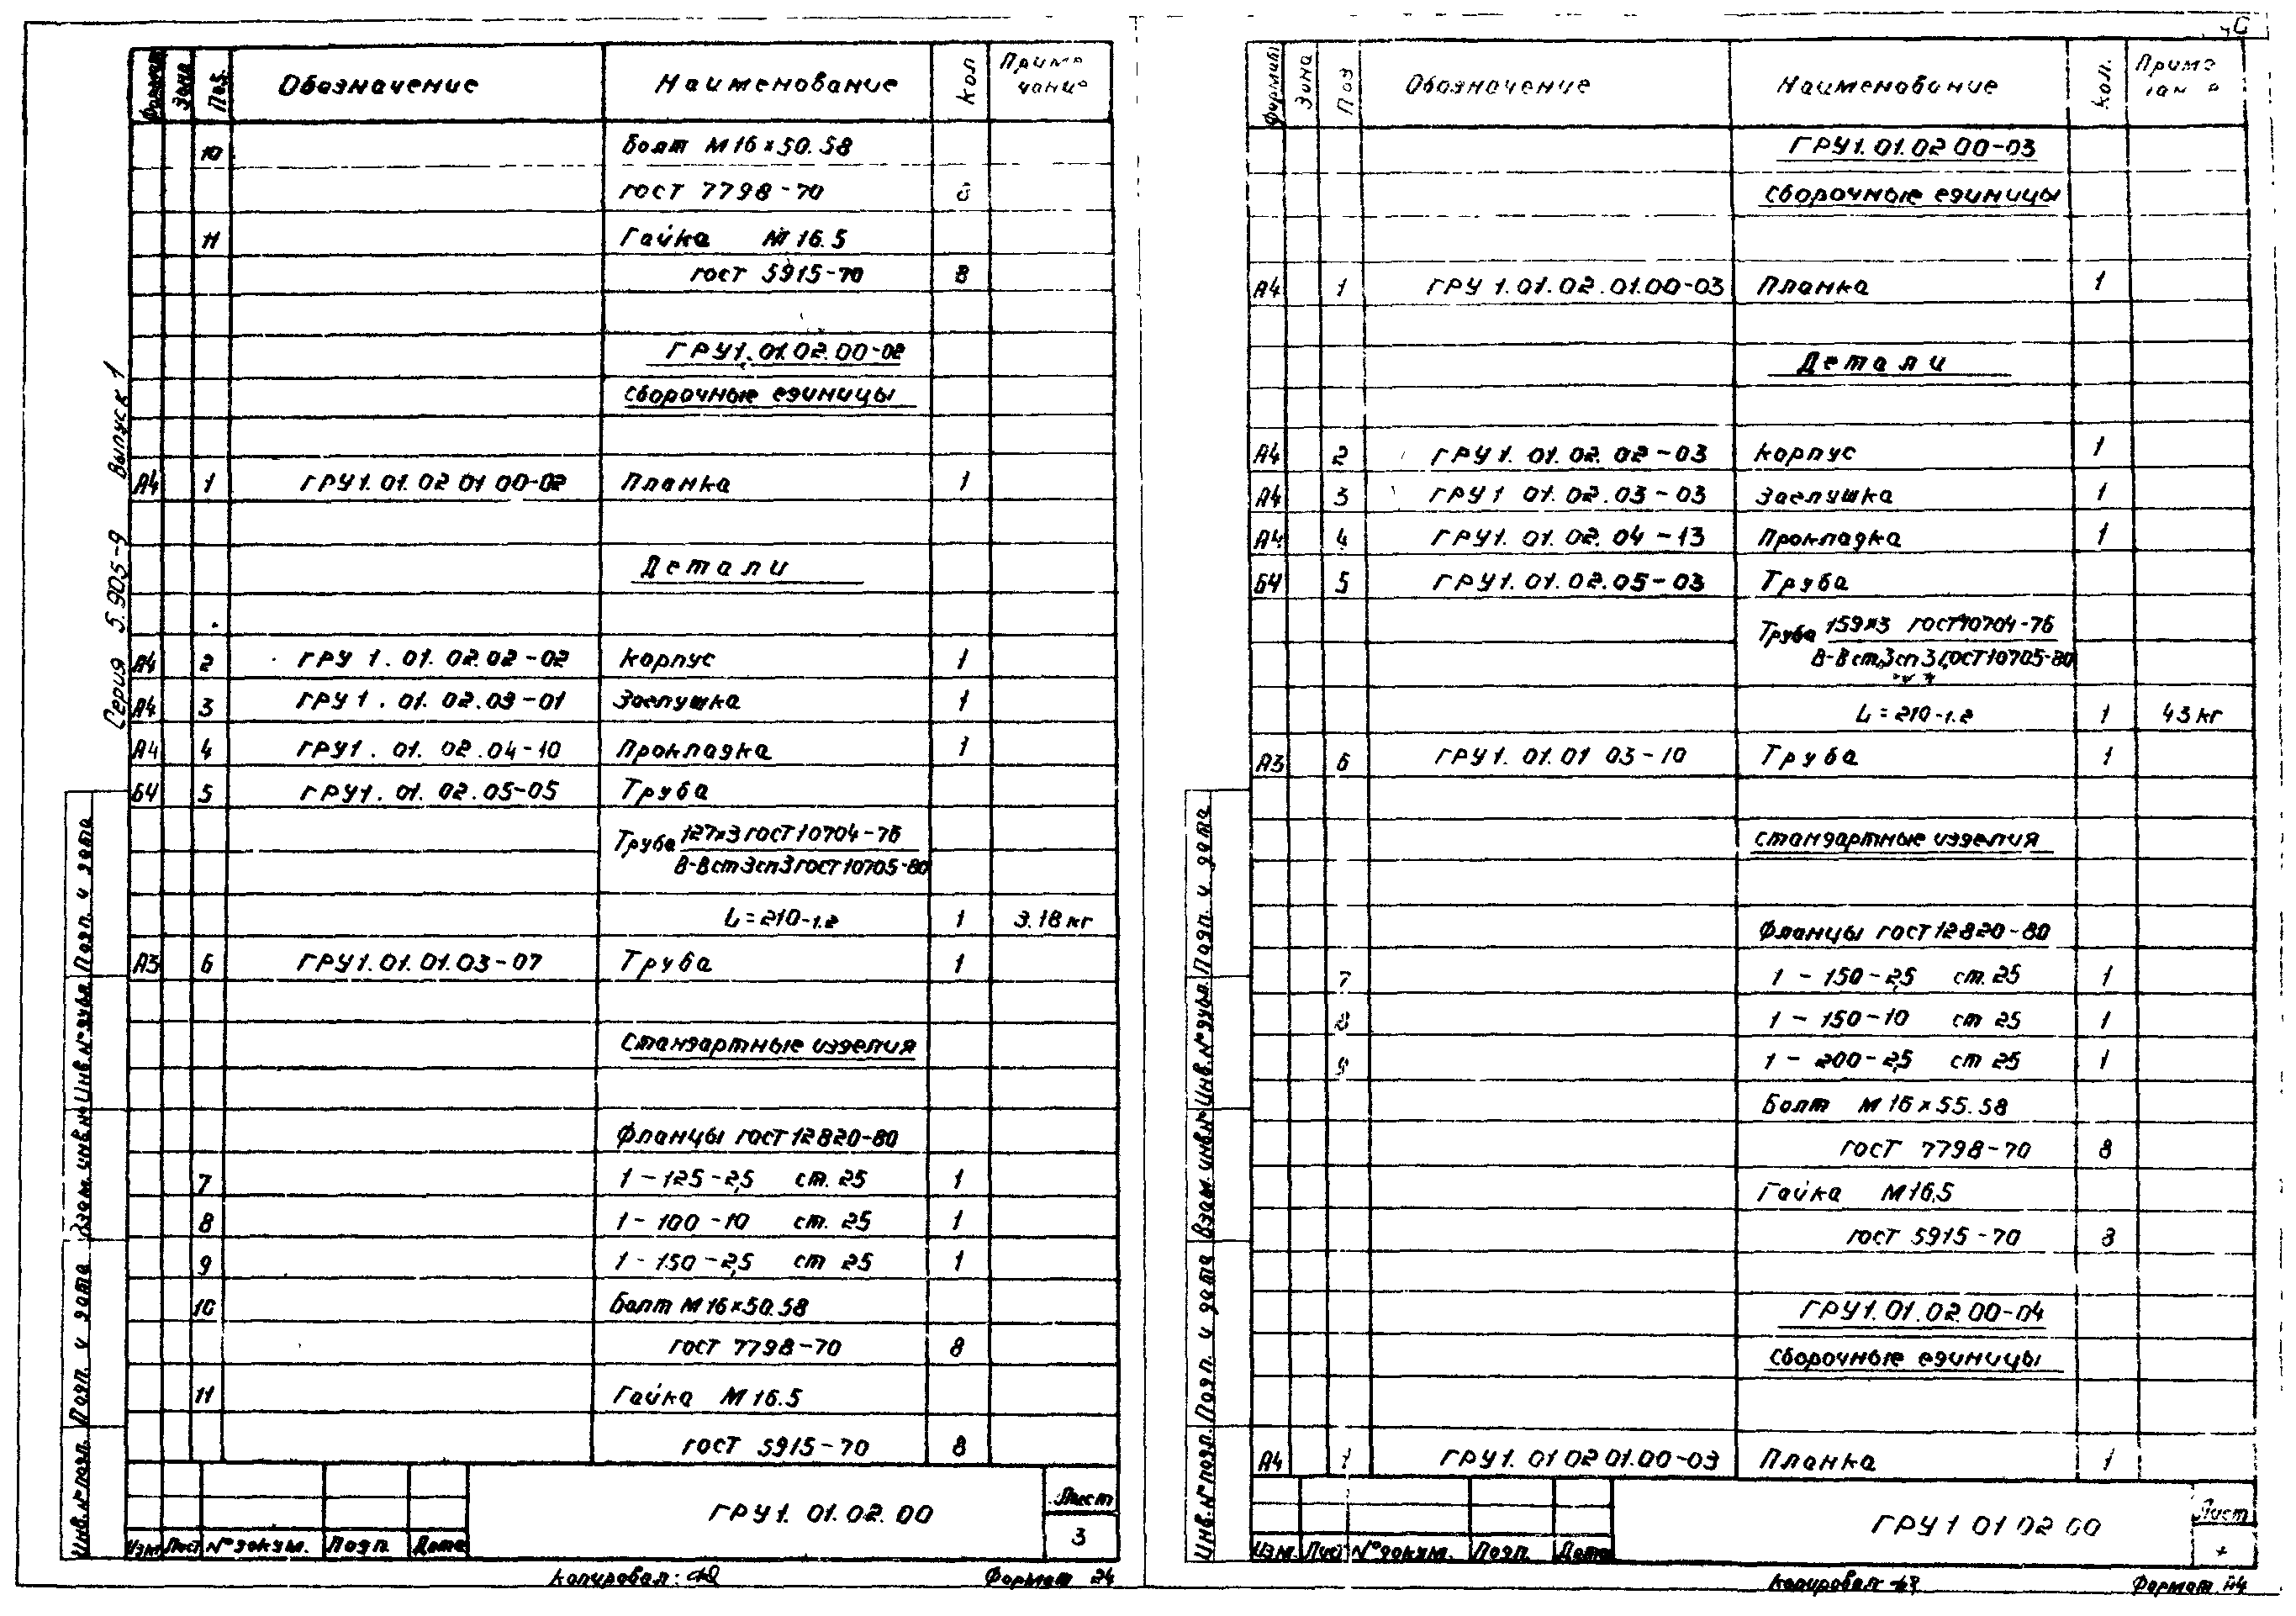 Серия 5.905-9 Выпуск 1
Формат Зона Поз. Обозначение Наименование Кол Приме
чание
10 Болт М16×50.58
ГОСТ 7798-70 8
11 Гайка М16.5
ГОСТ 5915-70 8
ГРУ1.01.02.00-02
Сборочные единицы
А4 1 ГРУ1.01.02 01 00-02 Планка 1
Детали
А4 2 ГРУ 1.01.02.02-02 Корпус 1
А4 3 ГРУ 1.01.02.03-01 Заглушка 1
А4 4 ГРУ1.01.02.04-10 Прокладка 1
Б4 5 ГРУ1.01.02.05-05 Труба
Труба 127×3 ГОСТ 10704-76
В-Вст3сп3 ГОСТ 10705-80
L=210-1.2 1 3.18 кг
А3 6 ГРУ1.01.01.03-07 Труба 1
Стандартные изделия
Фланцы ГОСТ 12820-80
7 1-125-2,5 ст. 25 1
8 1-100-10 ст. 25 1
9 1-150-2,5 ст 25 1
10 Болт М16×50.58
ГОСТ 7798-70 8
11 Гайка М16.5
ГОСТ 5915-70 8
Инв.№подл. Подп. и дата Взам.инв.№ Инв.№дубл. Подп. и дата
Изм Лист №докум. Подп. Дата
ГРУ1.01.02.00
Лист
3
Копировал:
Формат А4
Формат Зона Поз Обозначение Наименование Кол. Приме
ГРУ1.01.02 00-03
Сборочные единицы
А4 1 ГРУ 1.01.02.01.00-03 Планка 1
Детали
А4 2 ГРУ1.01.02.02-03 Корпус 1
А4 3 ГРУ1 01.02.03-03 Заглушка 1
А4 4 ГРУ1.01.02.04-13 Прокладка 1
Б4 5 ГРУ1.01.02.05-03 Труба
Труба 159×3 ГОСТ 10704-76
В-Вст3сп3 ГОСТ 10705-80
L=210-1.2 1 43 кг
А3 6 ГРУ1.01.01 03-10 Труба 1
Стандартные изделия
Фланцы ГОСТ 12820-80
7 1-150-2,5 ст. 25 1
8 1-150-10 ст 25 1
9 1-200-2,5 ст 25 1
Болт М16×55.58
ГОСТ 7798-70 8
Гайка М16.5
ГОСТ 5915-70 8
ГРУ1.01.02.00-04
Сборочные единицы
А4 1 ГРУ1.01 02 01.00-03 Планка 1
Инв.№подл. Подп. и дата Взам.инв.№ Инв.№дубл. Подп. и дата
Изм. Лист №докум. Подп. Дата
ГРУ1 01 02 00
Лист
Копировал
Формат А4